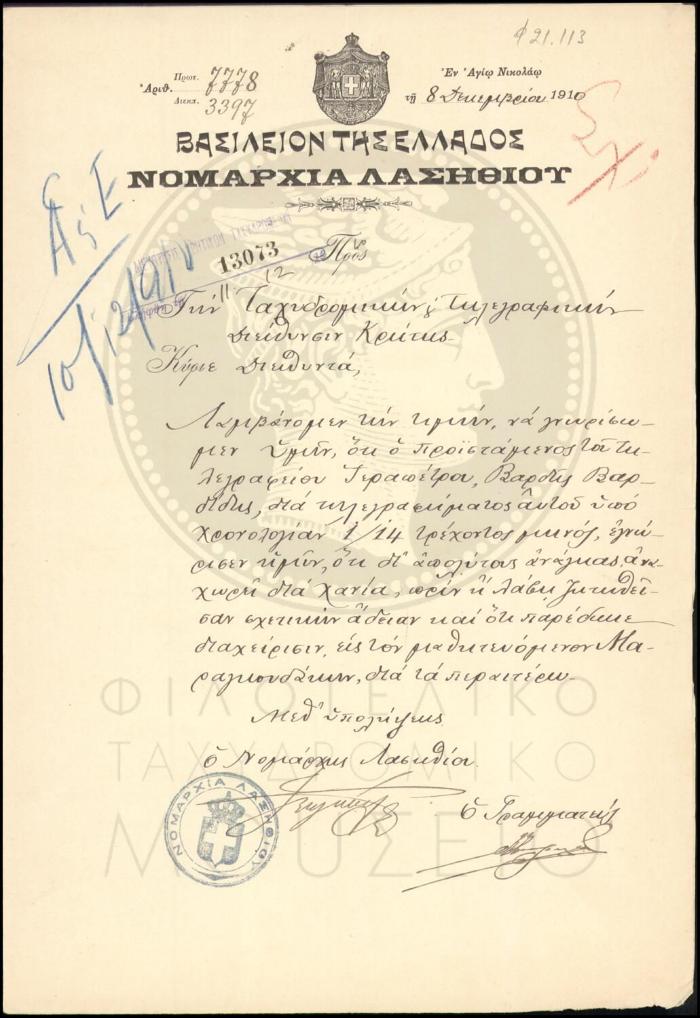 φ21.113
Πρωτ.
Ἀριθ. 7778
Διεκπ. 3397
Ἐν Ἁγίῳ Νικολάῳ
τῇ 8 Δεκεμβρίου 1910
ΒΑΣΙΛΕΙΟΝ ΤΗΣ ΕΛΛΑΔΟΣ
ΝΟΜΑΡΧΙΑ ΛΑΣΗΘΙΟΥ
10/12/910
13073
11 12
Πρὸς
Τὴν Ταχυδρομικὴν & Τηλεγραφικὴν
Διεύθυνσιν Κρήτης
Κύριε Διευθυντά,
Λαμβάνομεν τὴν τιμὴν, νὰ γνωρίσω-
μεν ὑμῖν, ὅτι ὁ προϊστάμενος τοῦ τη-
λεγραφείου Ἱεραπέτρου, Βαρδῆς Βαρ-
δίδης, διὰ τηλεγραφήματος αὐτοῦ ὑπὸ
χρονολογίαν 1/14 τρέχοντος μηνός, ἐγνώ-
ρισεν ἡμῖν, ὅτι δι' ἀπολύτους ἀνάγκας, ἀνα-
χωρεῖ διὰ Χανία, πρὶν ἢ λάβῃ ζητηθεῖ-
σαν σχετικὴν ἄδειαν καὶ ὅτι παρέδωκε
διαχείρισιν, εἰς τὸν μαθητευόμενον Μα-
ραγκουδάκην, διὰ τὰ περαιτέρω.
Μεθ' ὑπολήψεως
ὁ Νομάρχης Λασηθίου
ὁ Γραμματεὺς
ΝΟΜΑΡΧΙΑ ΛΑΣΗΘΙΟΥ
ΦΙΛΟΤΕΛΙΚΟ
ΤΑΧΥΔΡΟΜΙΚΟ
ΜΟΥΣΕΙΟ